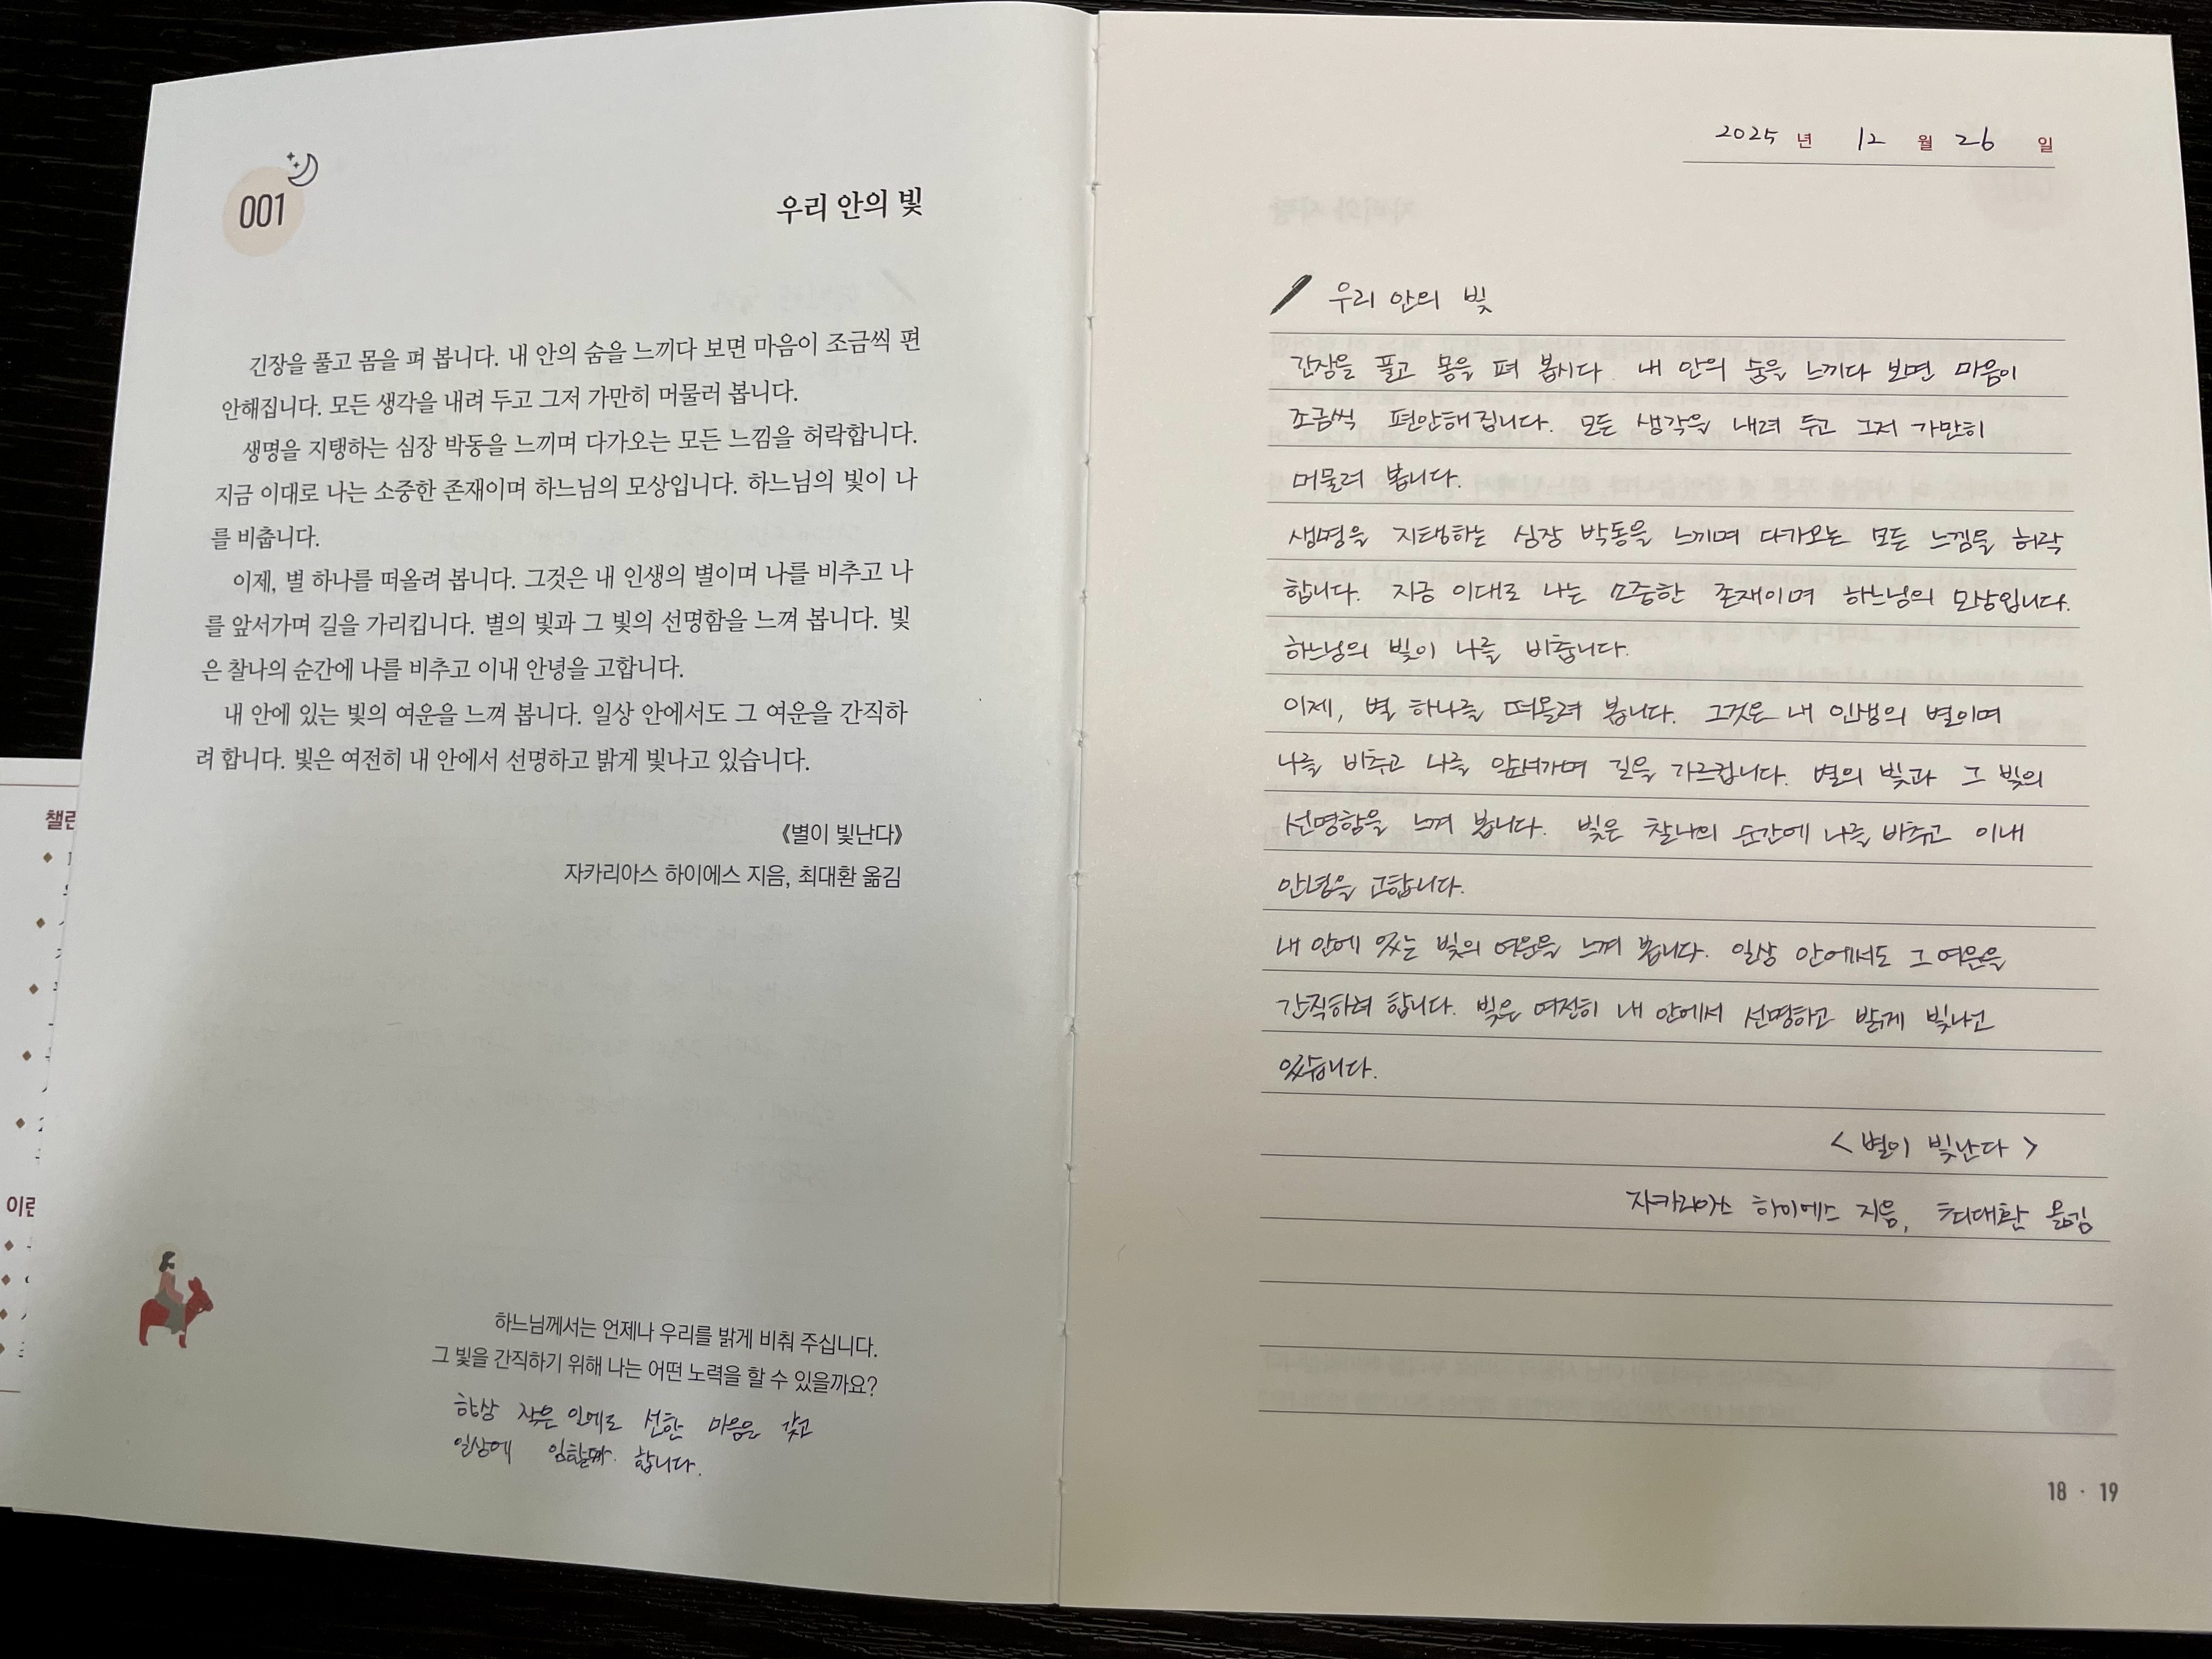 001
우리 안의 빛
긴장을 풀고 몸을 펴 봅니다. 내 안의 숨을 느끼다 보면 마음이 조금씩 편
안해집니다. 모든 생각을 내려 두고 그저 가만히 머물러 봅니다.
생명을 지탱하는 심장 박동을 느끼며 다가오는 모든 느낌을 허락합니다.
지금 이대로 나는 소중한 존재이며 하느님의 모상입니다. 하느님의 빛이 나
를 비춥니다.
이제, 별 하나를 떠올려 봅니다. 그것은 내 인생의 별이며 나를 비추고 나
를 앞서가며 길을 가리킵니다. 별의 빛과 그 빛의 선명함을 느껴 봅니다. 빛
은 찰나의 순간에 나를 비추고 이내 안녕을 고합니다.
내 안에 있는 빛의 여운을 느껴 봅니다. 일상 안에서도 그 여운을 간직하
려 합니다. 빛은 여전히 내 안에서 선명하고 밝게 빛나고 있습니다.
《별이 빛난다》
자카리아스 하이에스 지음, 최대환 옮김
하느님께서는 언제나 우리를 밝게 비춰 주십니다.
그 빛을 간직하기 위해 나는 어떤 노력을 할 수 있을까요?
항상 작은 일에로 선한 마음은 갖고
일상에 합니다.
챌린
이런
2025 년 12 월 26 일
우리 안의 빛
긴장을 풀고 몸을 펴 봅시다. 내 안의 숨을 느끼다 보면 마음이
조금씩 편안해집니다. 모든 생각을 내려 두고 그저 가만히
머물러 봅니다.
생명을 지탱하는 심장 박동을 느끼며 다가오는 모든 느낌을 허락
합니다. 지금 이대로 나는 소중한 존재이며 하느님의 모상입니다.
하느님의 빛이 나를 비춥니다.
이제, 별 하나를 떠올려 봅니다. 그것은 내 인생의 별이며
나를 비추고 나를 앞서가며 길을 가르킵니다. 별의 빛과 그 빛의
선명함을 느껴 봅니다. 빛은 찰나의 순간에 나를 비추고 이내
안녕을 고합니다.
내 안에 있는 빛의 여운을 느껴 봅니다. 일상 안에서도 그 여운을
간직하려 합니다. 빛은 여전히 내 안에서 선명하고 밝게 빛나고
있습니다.
< 별이 빛난다 >
자카리아스 하이에스 지음, 최대환 옮김
18 · 19